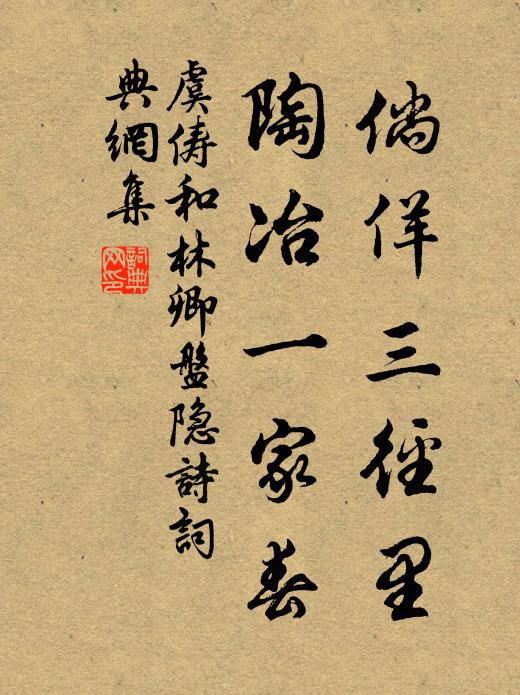 倘佯三徑里
陶冶一家春
虞儔和林卿盤隐詩詞
典網集
詞典
网印